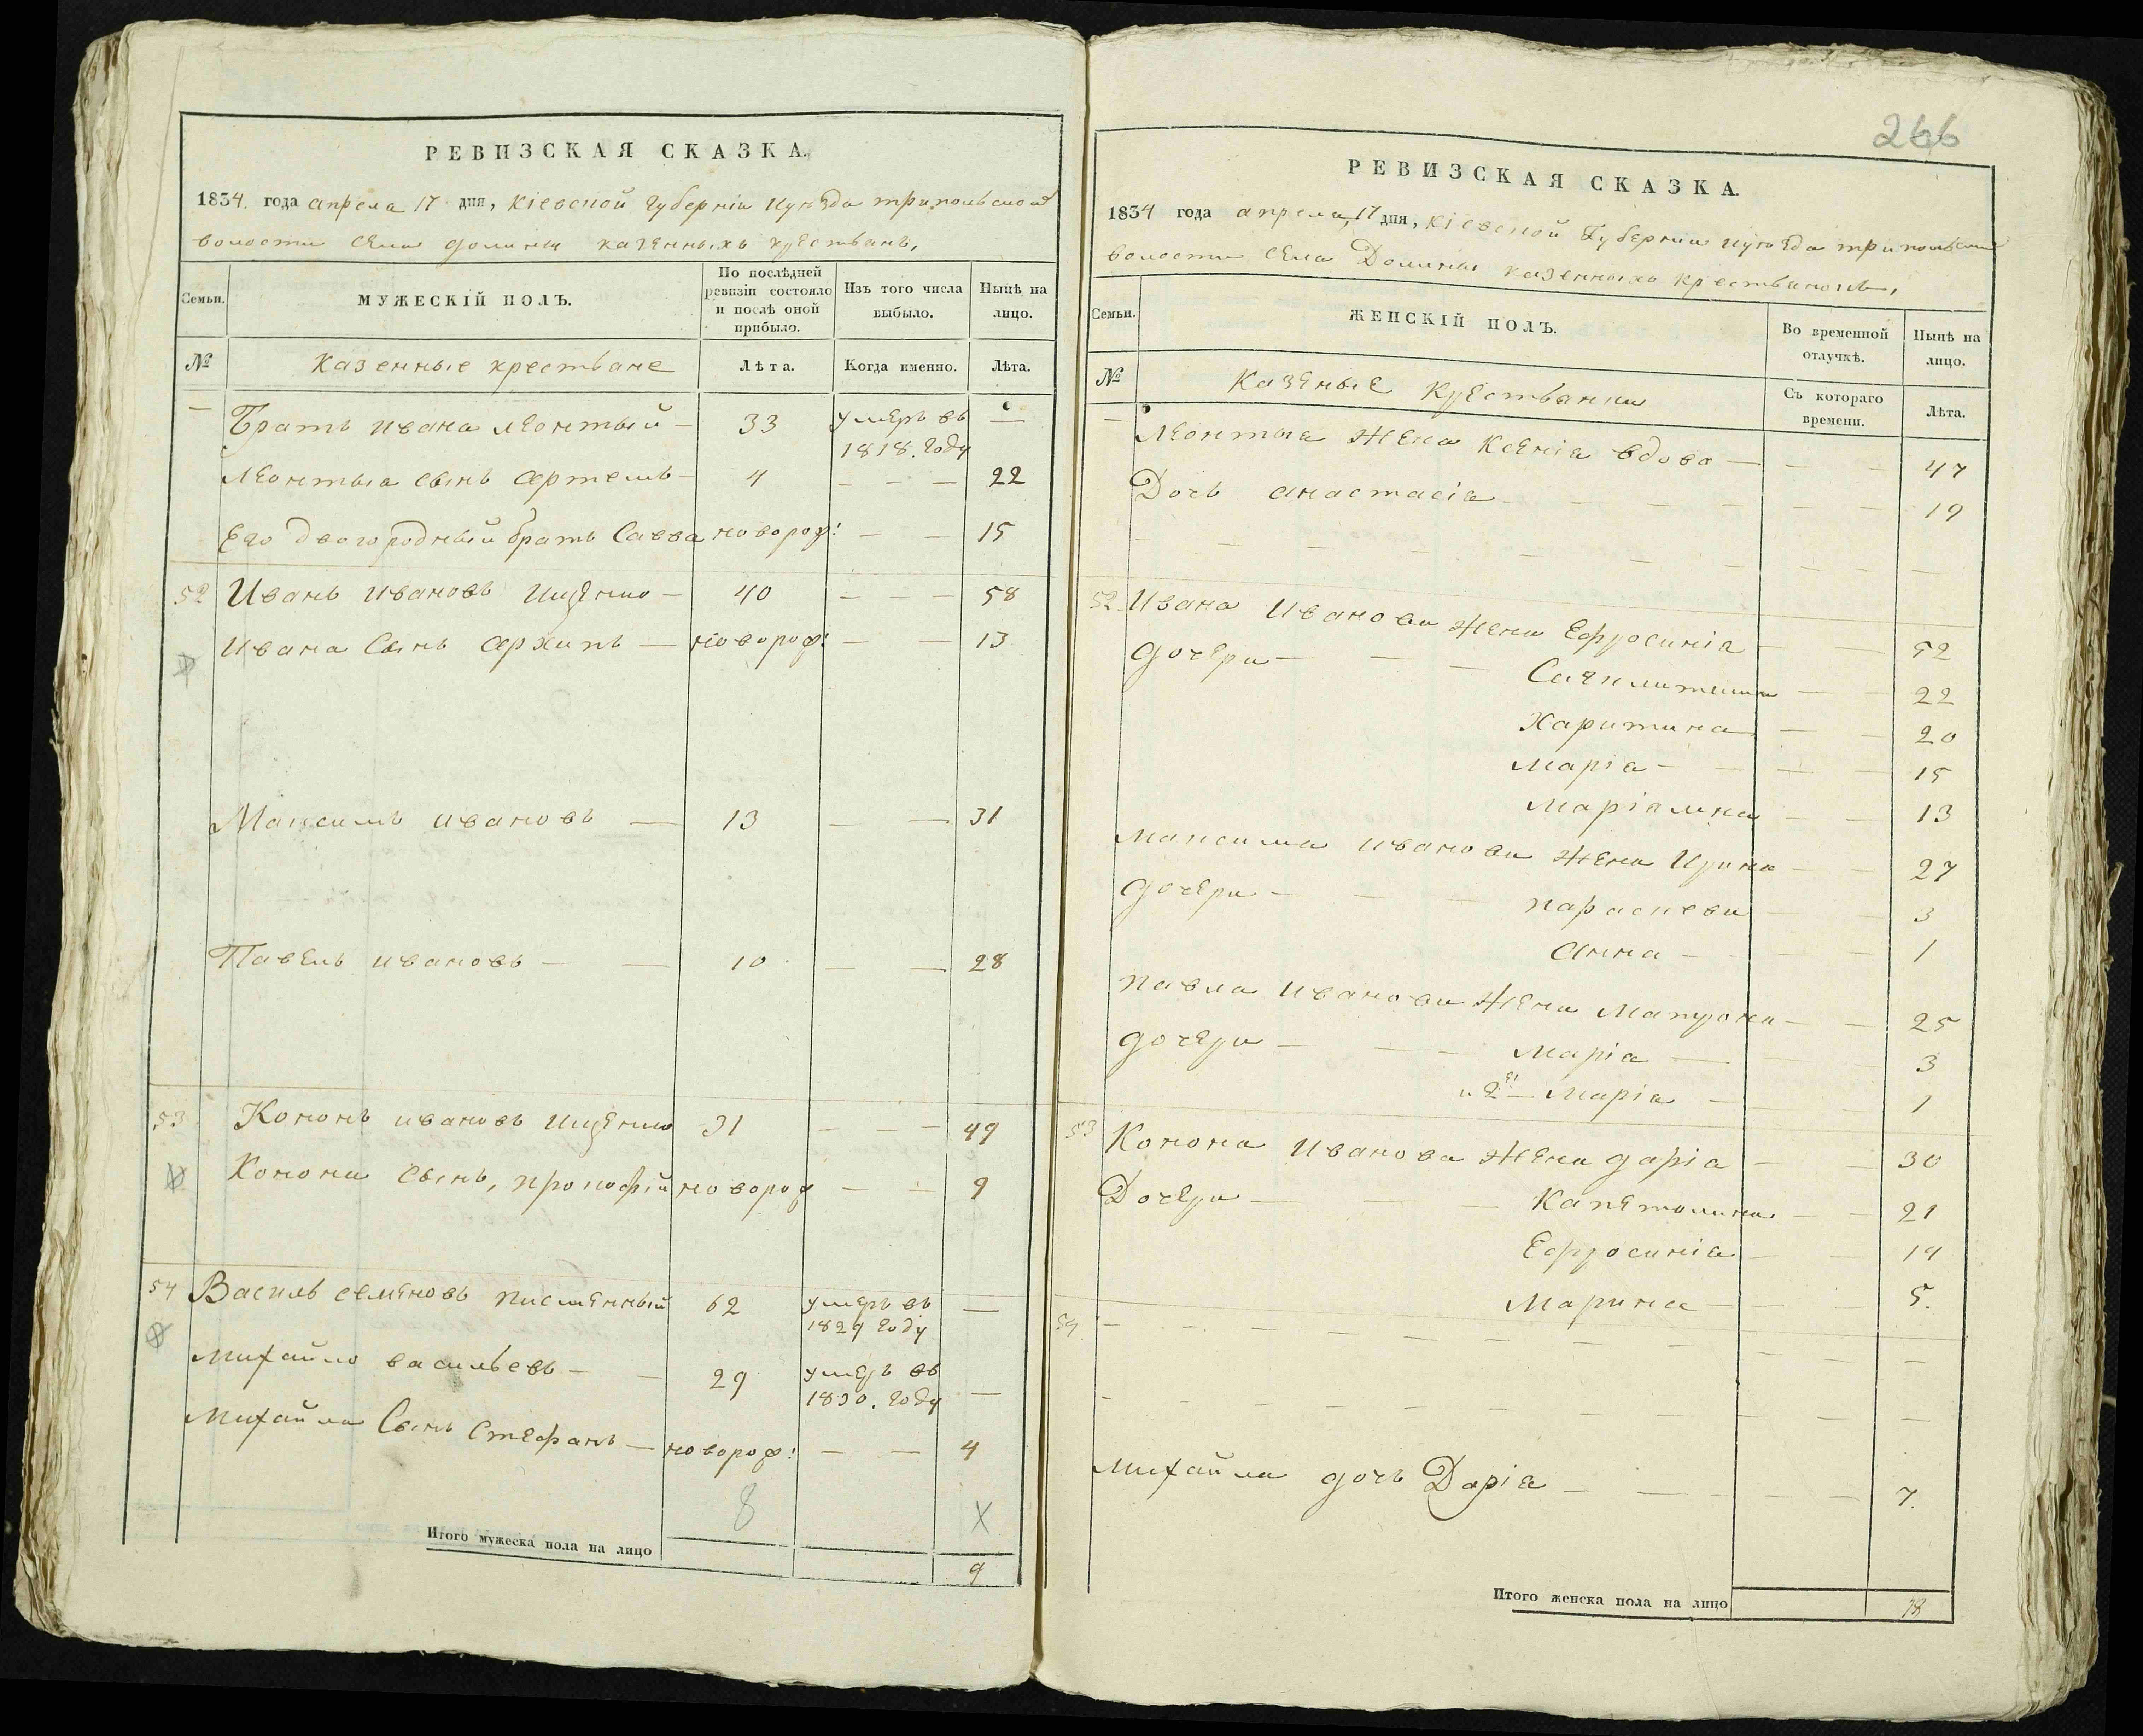 РЕВИЗСКАЯ СКАЗКА.
1834. года апреля 17 дня, Кіевской Губерніи и уезда трипольской
волости села долины казенныхъ крестьянъ,
Семьи.
МУЖЕСКІЙ ПОЛЪ.
По послѣдней ревизіи состояло и послѣ оной прибыло.
Изъ того числа выбыло.
Нынѣ на лицо.
№ казенные крестьяне Лѣта. Когда именно. Лѣта.
— Братъ ивана леонтый — 33 умеръ въ 1818. году —
леонтыя сынъ артемъ — 4 — — — 22
Его двоюродный братъ Савва новорож: — — 15
52 Иванъ ивановъ ищенко — 40 — — — 58
ивана Сынъ архипъ — новорож: — — 13
Максимъ ивановъ — 13 — — 31
Павелъ ивановъ — — 10 — — 28
53 Кононъ ивановъ ищенко 31 — — — 49
Конона сынъ, прокофій новорож — — 9
54 Василь семеновъ писменный 62 умеръ въ 1829 году —
михайло васильевъ — — 29 умеръ въ 1830. году —
михайла Сынъ стефанъ — новорож: — — 4
8 X
Итого мужеска пола на лицо 9
266
РЕВИЗСКАЯ СКАЗКА.
1834 года апреля, 17 дня, Кіевской Губерніи и уезда трипольской
волости села Долины казенныхъ крестьянокъ,
Семьи.
ЖЕНСКІЙ ПОЛЪ.
Во временной отлучкѣ.
Нынѣ на лицо.
№ Казеные крестьянки Съ котораго времени. Лѣта.
— леонтыя жена Ксенія вдова — — — 47
Дочь анастасія — — — — — 19
52 Ивана Иванова жена Ефросинія — — 52
дочери — — — — — 22
Харитина — — 20
марія — — — — 15
маріамна — — 13
максима иванова жена Ирина — — 27
дочери — — — параскева — — 3
анна — — — 1
павла иванова жена матрона — — 25
дочери — — — марія — — 3
и 2я — марія — — 1
53 Конона Иванова жена дарія — — 30
Дочери — — — Капетолина — — 21
Ефросинія — — 14
марина — — 5.
54. — — — — — — — —
— — — — — — — — —
михайла дочь Дарія — — — — 7.
Итого женска пола на лицо 18